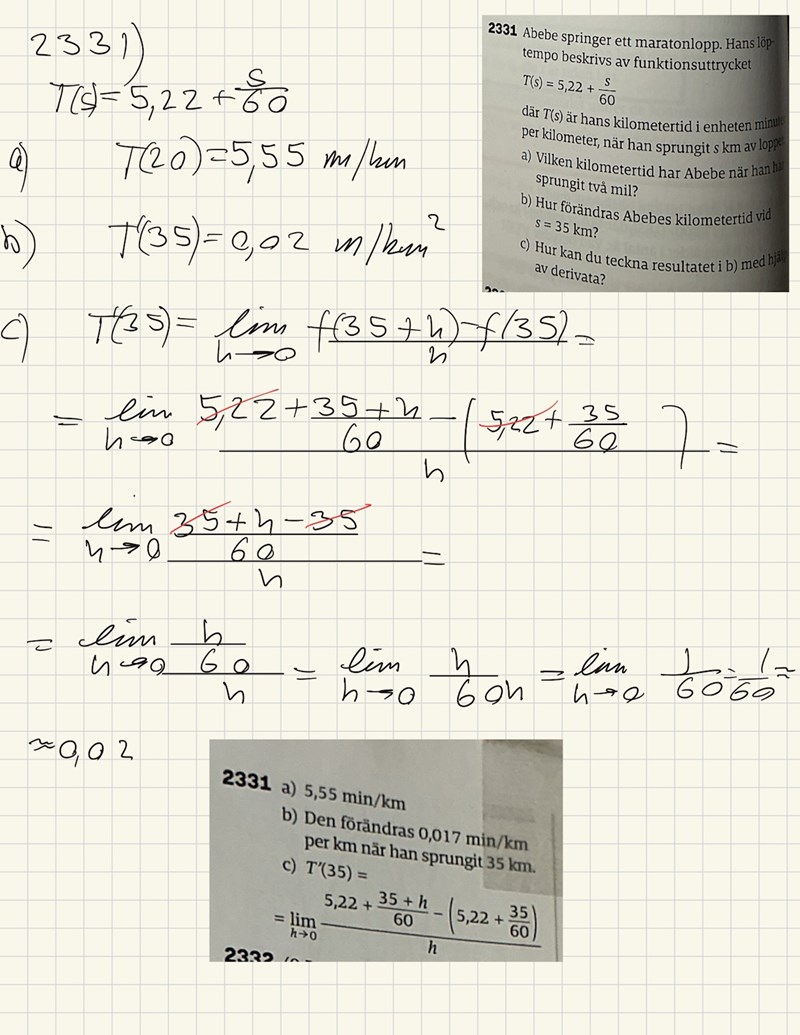 2331)
T(s)=5,22+s/60
a) T(20)=5,55 m/km
b) T'(35)=0,02 m/km²
c) T'(35)= lim h→0 f(35+h)-f(35)/h =
= lim h→0 5,22+35+h/60-(5,22+35/60)/h =
= lim h→0 35+h-35/60/h =
= lim h→0 h/60/h = lim h→0 h/60h = lim h→0 1/60 = 1/60 ≈
≈0,02
2331 Abebe springer ett maratonlopp. Hans löp-
tempo beskrivs av funktionsuttrycket
T(s) = 5,22 + s/60
där T(s) är hans kilometertid i enheten
per kilometer, när han sprungit s km av
a) Vilken kilometertid har Abebe när han
sprungit två mil?
b) Hur förändras Abebes kilometertid vid
s = 35 km?
c) Hur kan du teckna resultatet i b) med
av derivata?
2331 a) 5,55 min/km
b) Den förändras 0,017 min/km
per km när han sprungit 35 km.
c) T'(35) =
= lim h→0 5,22 + 35 + h/60 - (5,22 + 35/60)/h
2332